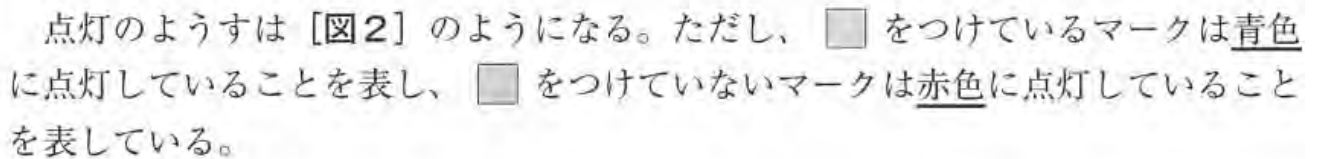 点灯のようすは［図２］のようになる。ただし、 をつけているマークは青色
に点灯していることを表し、 をつけていないマークは赤色に点灯していること
を表している。